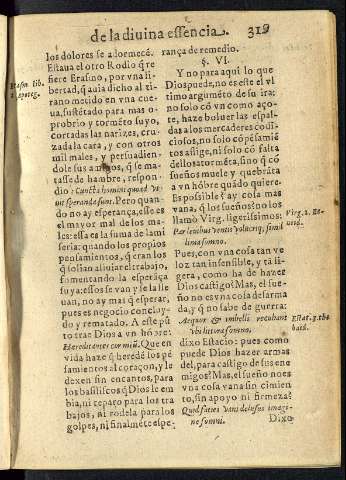 de la diuina essencia.
319
los dolores se adormecē.
Estaua el otro Rodio q̃ re
fiere Erasmo, por vna li
bertad, q̃ auia dicho al ti
rano metido en vna cue
ua, sustētado para mas o
probrio y tormēto suyo,
cortadas las narizes, cru
zada la cara, y con otros
mil males, y persuadien-
dole sus amigos, q̃ se ma-
tasse de hambre, respon-
dio: Cuncta homini quad vi
uit speranda sunt. Pero quan
do no ay esperança, esse es
el mayor mal de los ma-
les: essa es la suma de la mi
seria: quando los propios
pensamientos, q̃ eran los
q̃ soliā aliuiar el trabajo,
fomentando la esperāça
suya: essos se van y se lle
uan, no ay mas q̃ esperar,
pues es negocio conclu-
y rematado. A este pūto
trae Dios a vn hōbre:
Heredit antes cor miū. Que en
vida haze q̃ heredē los pē
samientos al coraçon, y le
dexen sin encantos, para
los basiliscos q̃ Dios le em
bia, ni reparo para los tra
bajos, ni rodela para los
golpes, ni finalmēte espe-
Erasm. lib.
Apoteg.
rança de remedio.
§. VI.
Y no para aqui lo que
Dios puede, no es este el vl
timo argumēto de su ira:
no solo cō vn como aço-
te, haze boluer las espal-
das a los mercaderes codi
ciosos, no solo cō pēsamiē
tos aflige, ni solo cō falta
dellos atormēta, sino q̃ cō
sueños muele y quebrāta
a vn hōbre quādo quiere.
Es possible q̃ ay cosa mas
vana, q̃ los sueños? no los
llamò Virg. ligerissimos:
Par leuibus ventis volucriq; simil
lima somno.
Virg. 2. Ae-
neid.
Pues, con vna cosa tan ve
loz tan insensible, y ta li-
gera, como ha de hazer
Dios castigo? Mas, el sue-
ño no es vna cosa desarma
da, y q̃ no sabe de guerra:
Aequor & imbelli recubant
vbi littora somno.
Estat. 3. the
baid.
dixo Estacio: pues como
puede Dios hazer armas
del, para castigo de sus ene
migos? Mas, el sueño no es
vna cosa vana sin cimien
to, sin apoyo ni firmeza?
Quid facies vani delusus imagi-
ne somni.
Dixo